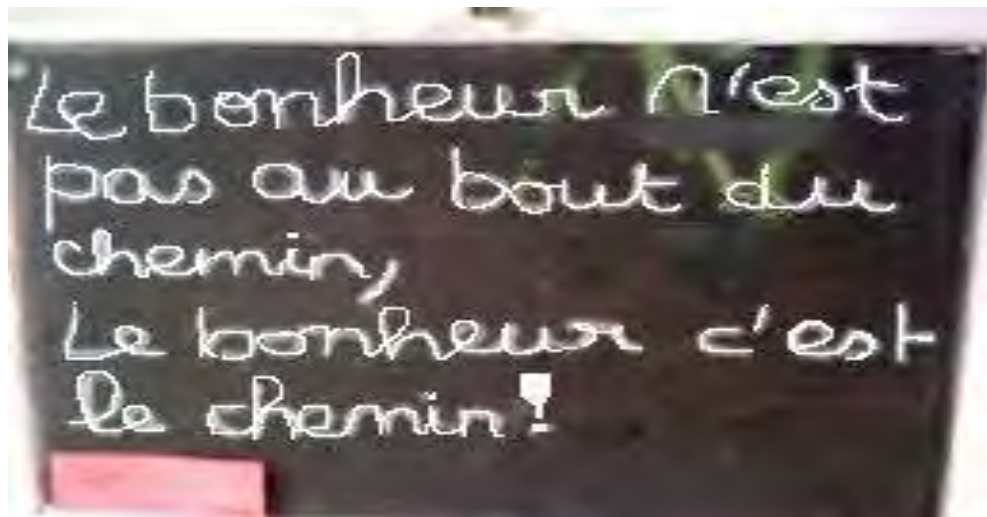 Le bonheur n'est
pas au bout du
chemin,
Le bonheur c'est
le chemin !